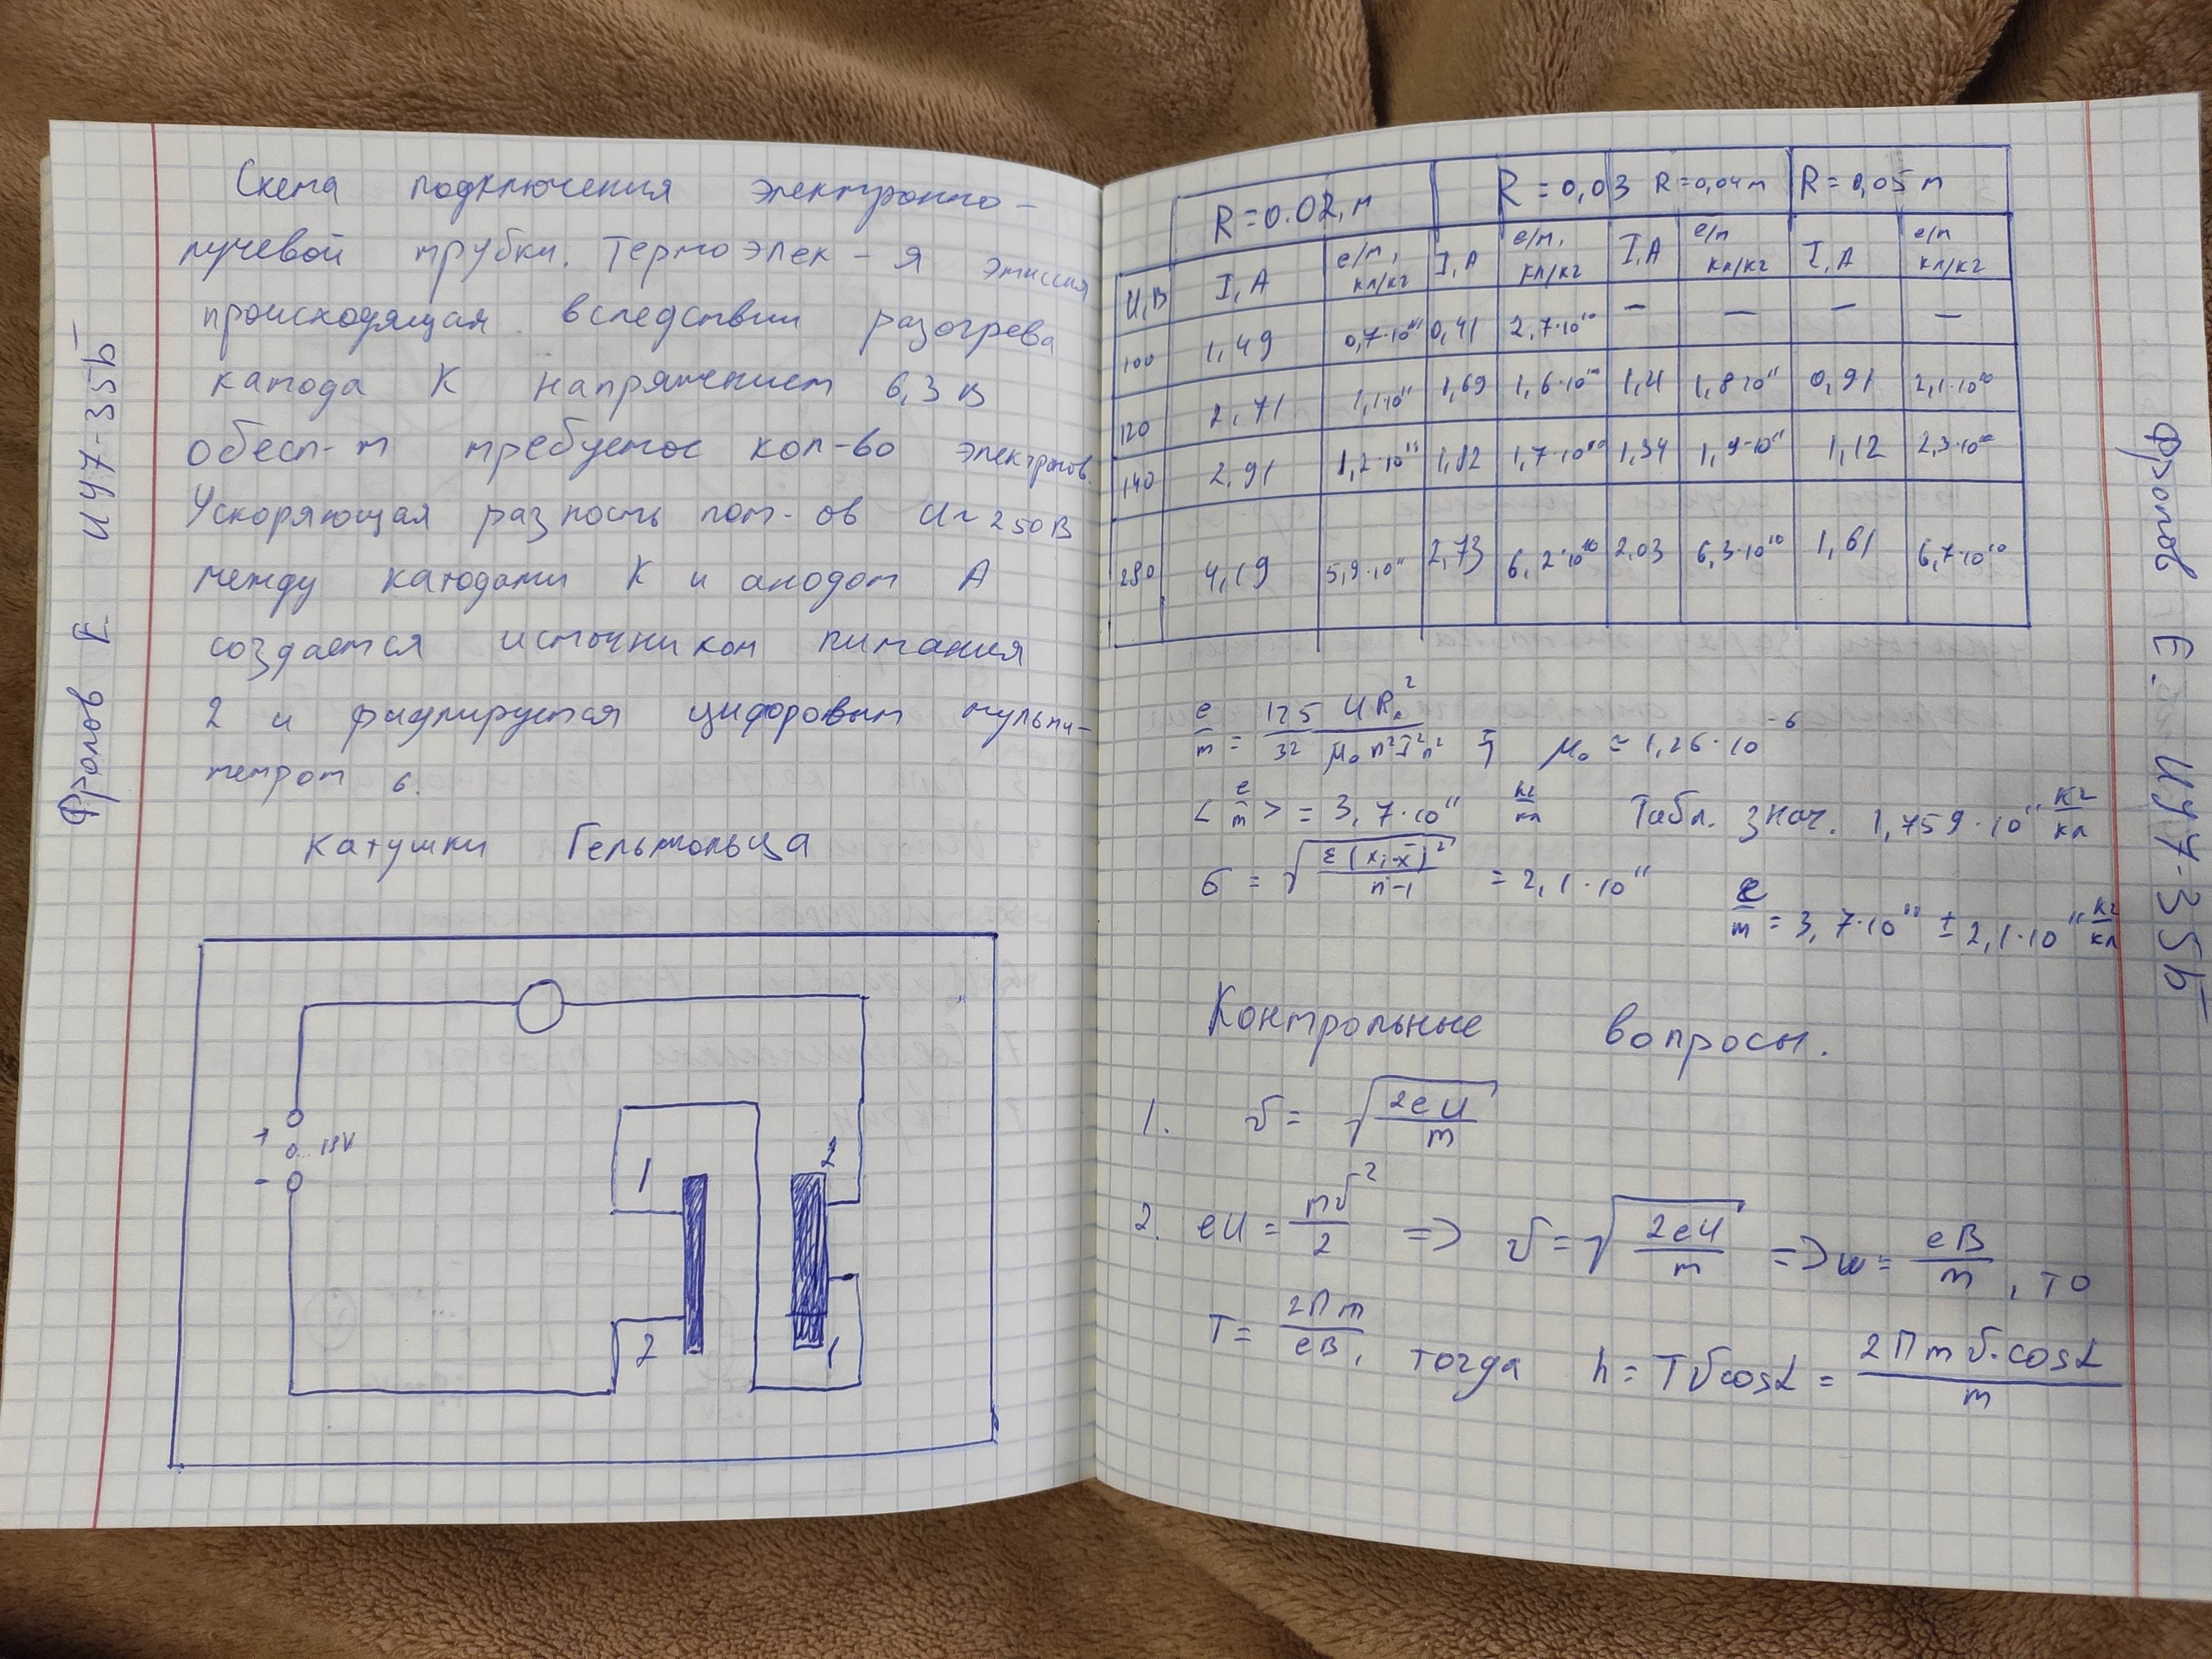 Фролов Е ИУ7-35Б
Схема подключения электронно-
лучевой трубки. Термоэлек-я эмиссия
происходящая вследствии разогрева
катода К напряжением 6,3 В
обесп-т требуемое кол-во электронов.
Ускоряющая разность пот-ов U~250В
между катодами К и анодом А
создается источником питания
2 и фиднируется цифоровым мульти-
метром 6.
Катушки Гельмгольца
+ 0.. 18V
-
1 2
2 1
R=0.02, м R=0,03 R=0,04м R=0,05 м
U,В I, А e/m, кл/кг I, А e/m, кл/кг I,А e/m кл/кг I, А e/m кл/кг
100 1,49 0,7·10¹¹ 0,41 2,7·10¹⁰ — — — —
120 2,71 1,1·10¹¹ 1,69 1,6·10¹⁰ 1,21 1,8·10¹¹ 0,91 2,1·10¹⁰
140 2,91 1,2·10¹¹ 1,82 1,7·10¹⁰ 1,34 1,9·10¹¹ 1,12 2,3·10¹⁰
280 4,19 5,9·10¹¹ 2,73 6,2·10¹⁰ 2,03 6,3·10¹⁰ 1,61 6,7·10¹⁰
e/m = 125/32 UR²/μ₀n²I²n² μ₀ = 1,26·10⁻⁶
<e/m> = 3,7·10¹¹ кг/кл Табл. знач. 1,759·10¹¹ кг/кл
σ = √(Σ(xᵢ-x̄)²/n-1) = 2,1·10¹¹
e/m = 3,7·10¹¹ ± 2,1·10¹¹ кг/кл
Контрольные вопросы.
1. v = √(2eU/m)
2. eU = mv²/2 => v = √(2eU/m) => w = eB/m, то
T = 2Пm/eB, тогда h = Tvcosα = 2Пmv·cosα/m
Фролов Е. ИУ7-35Б